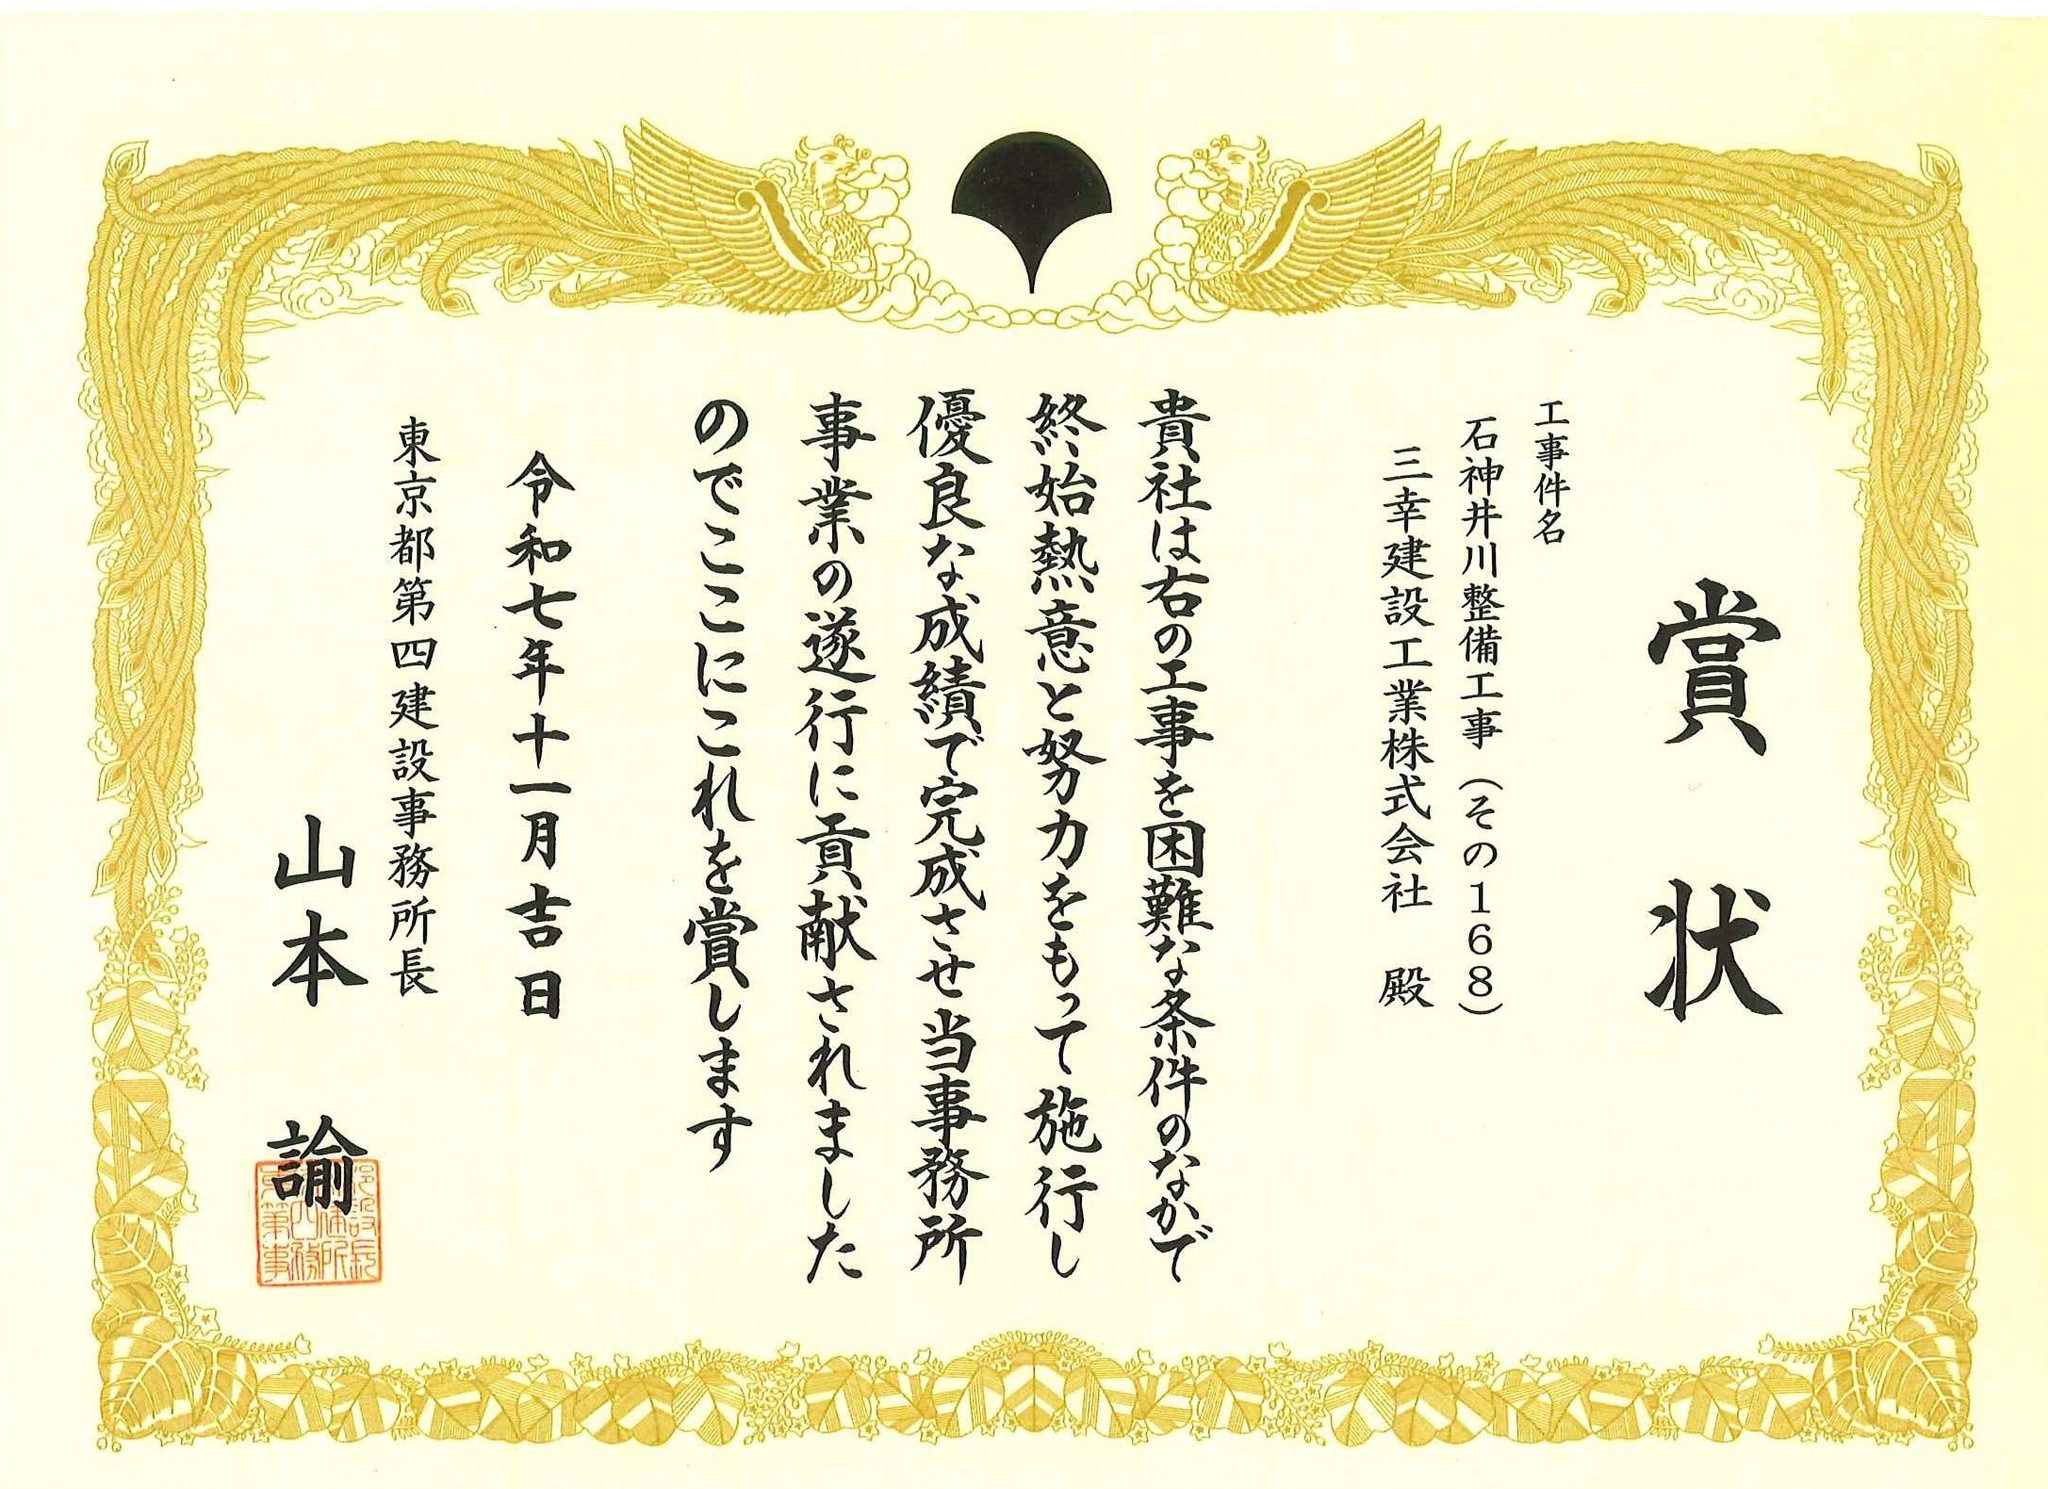 賞状
工事件名
石神井川整備工事（その１６８）
三幸建設工業株式会社　殿
貴社は右の工事を困難な条件のなかで
終始熱意と努力をもって施行し
優良な成績で完成させ当事務所
事業の遂行に貢献されました
のでここにこれを賞します
令和七年十一月吉日
東京都第四建設事務所長
山本　諭